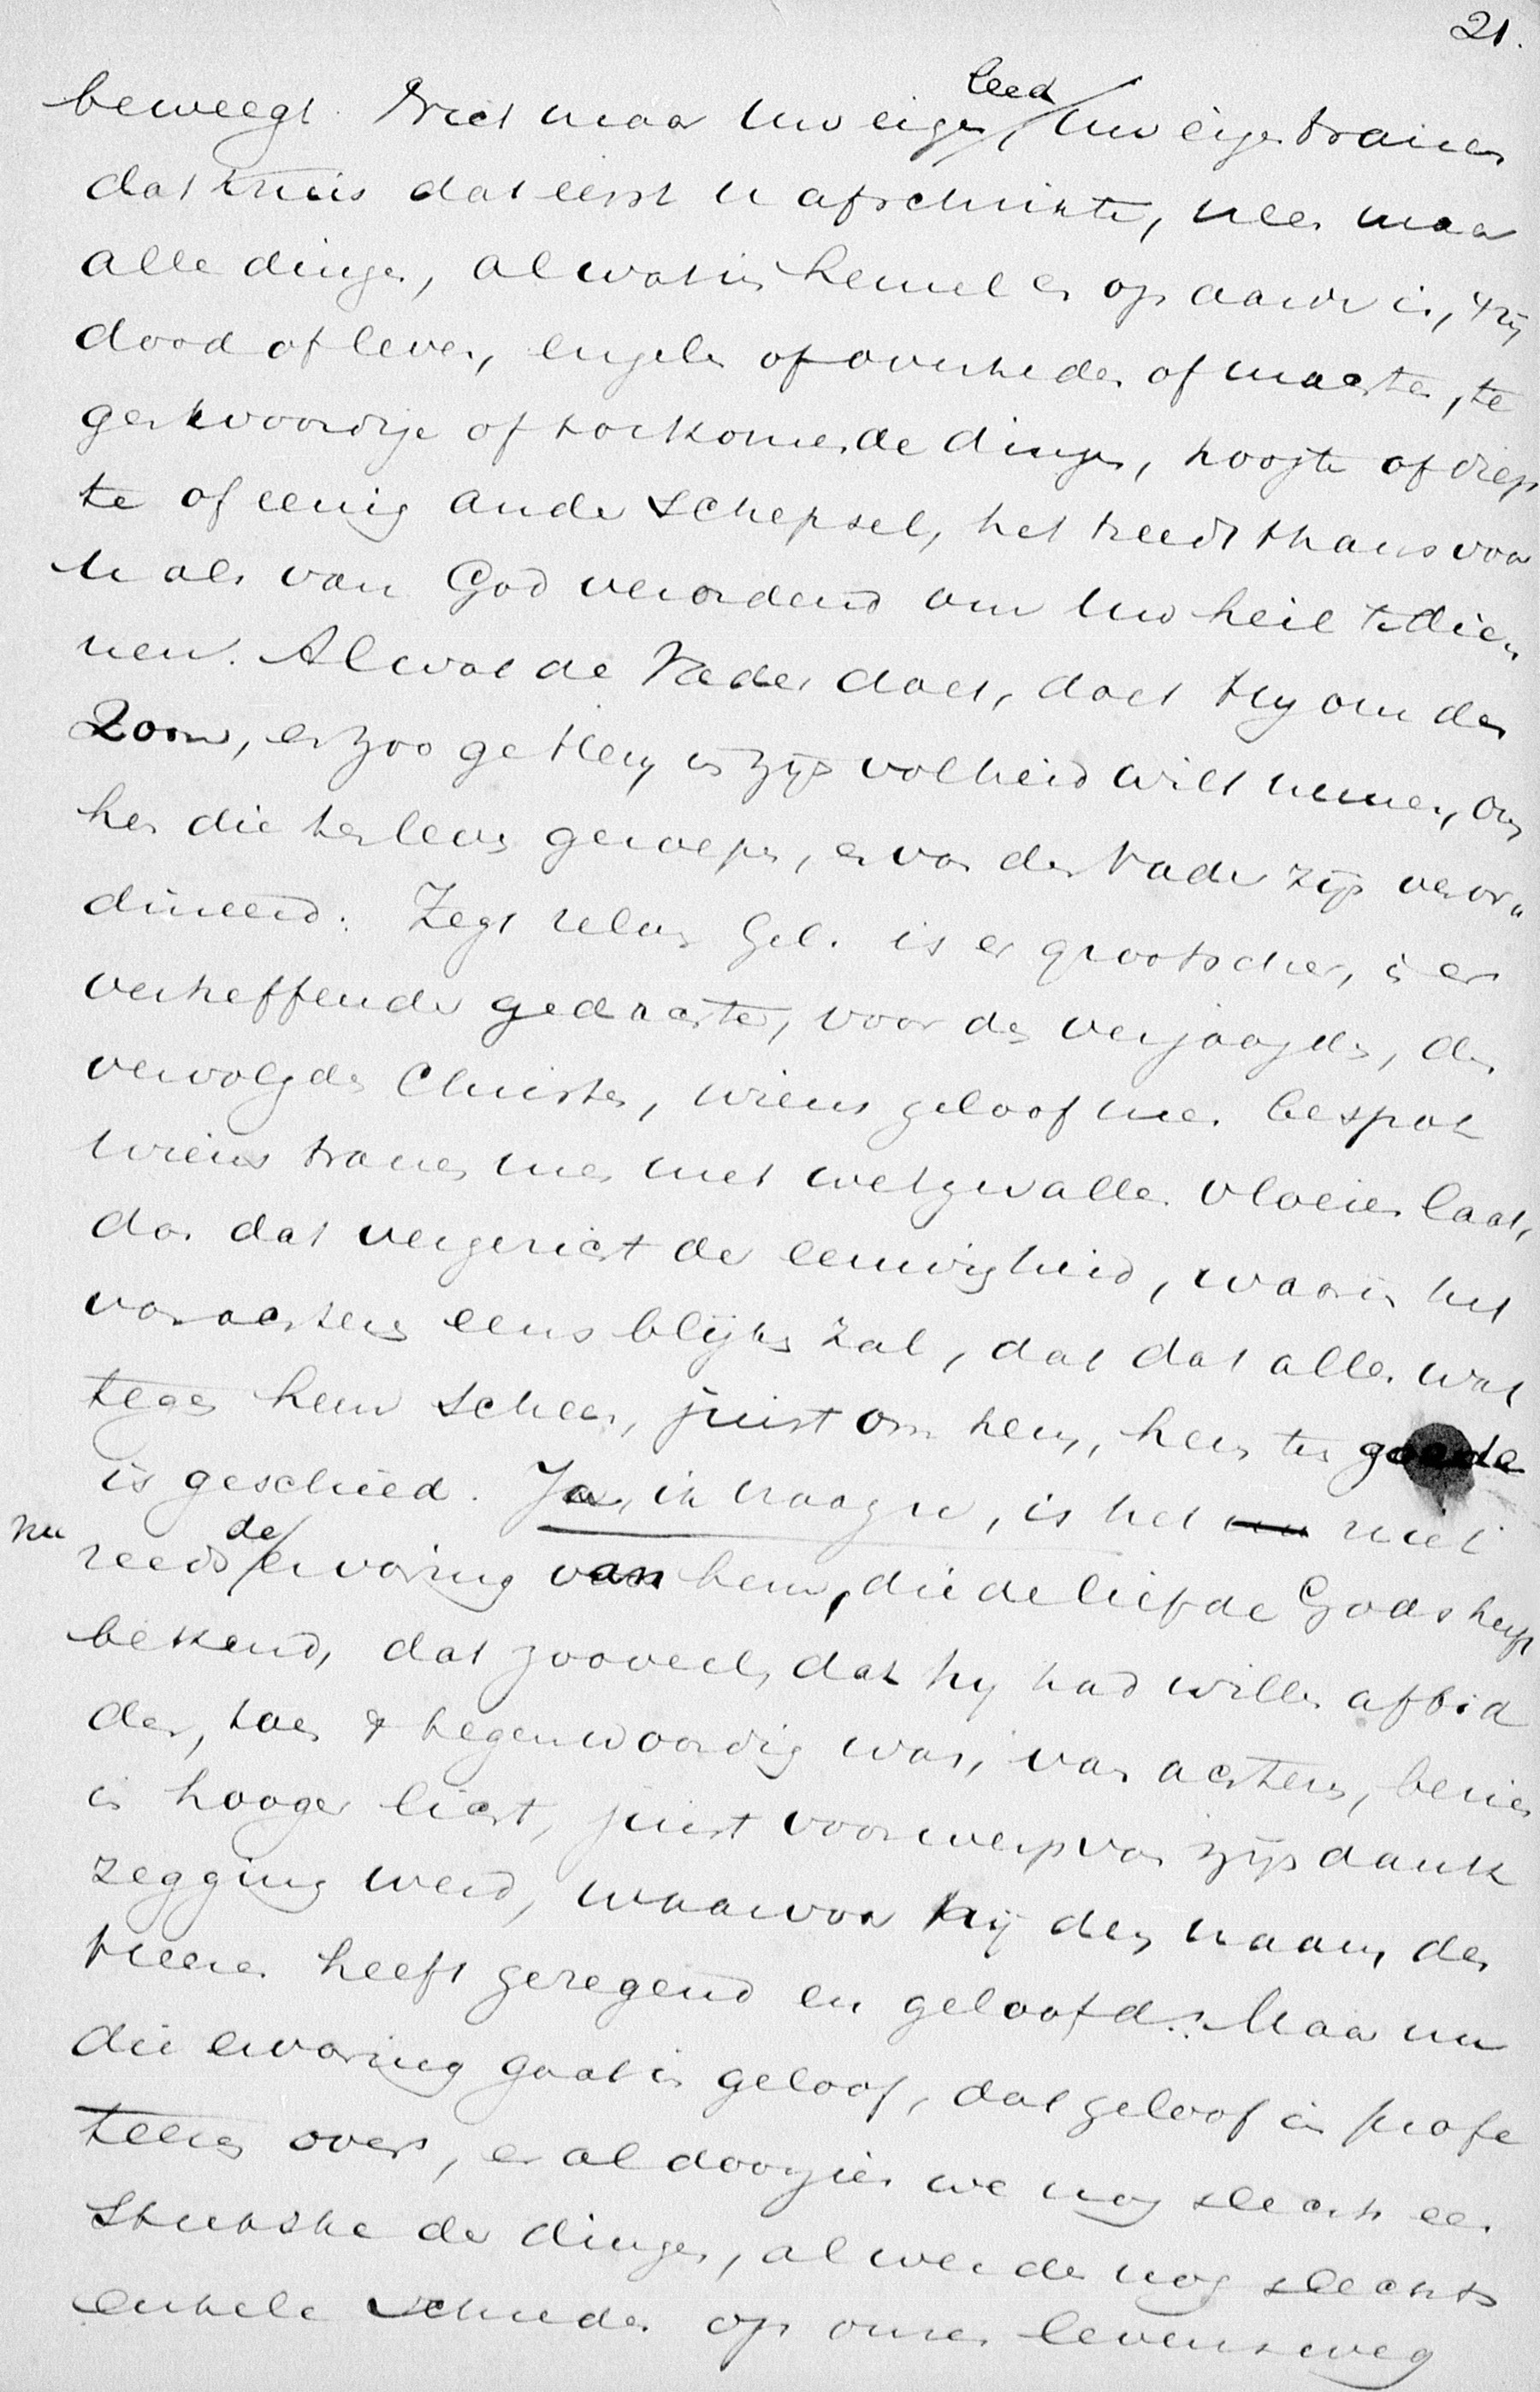 21.
beweegt. Niet maar Uw eigen leed, Uw eigen tranen
dat kruis dat eerst U afschrikte, neen maar
alle dingen, al wat in hemel en op aarde is, 't zij
dood of leven, engelen of overheden of machten, te
genwoordige of toekomende dingen, hoogte of diep
te of eenig ander schepsel, het treedt thans voor
U als van God verordend om Uw heil te die„
nen. Al wat de Vader doet, doet Hij om den
Zoon, en zoo ge Hem in zijn volheid wilt nemen, om
hen die ten leven geroepen, en van den Vader zijn veror„
dineerd. Zegt zelven Gel. is er grootscher, is er
verheffender gedachte, voor den verjaagden, den
vervolgden Christen, wiens geloof men bespot
wiens tranen men met welgevallen vloeien laat,
dan dat vergericht der eeuwigheid, waarin het
van achteren eens blijken zal, dat dat alles wat
tegen hem scheen, juist om hem, hem ten goede
is geschied. Ja, ik vraag u, is het niet
nu reeds de ervaring van hem, die de liefde Gods heeft
bekend, dat zooveel, dat hij had willen afbid
den, toen 't tegenwoordig was, van achteren, bezien
in hooger licht, juist voorwerp van zijn dank
zegging werd, waarvoor hij den naam des
Heeren heeft gezegend en geloofd. Maar nu
die ervaring gaat in geloof, dat geloof in profe
teeren over, en al doorzien we nog slechts een
stukske der dingen, al werden nog slechts
enkele schreden op onzen levensweg